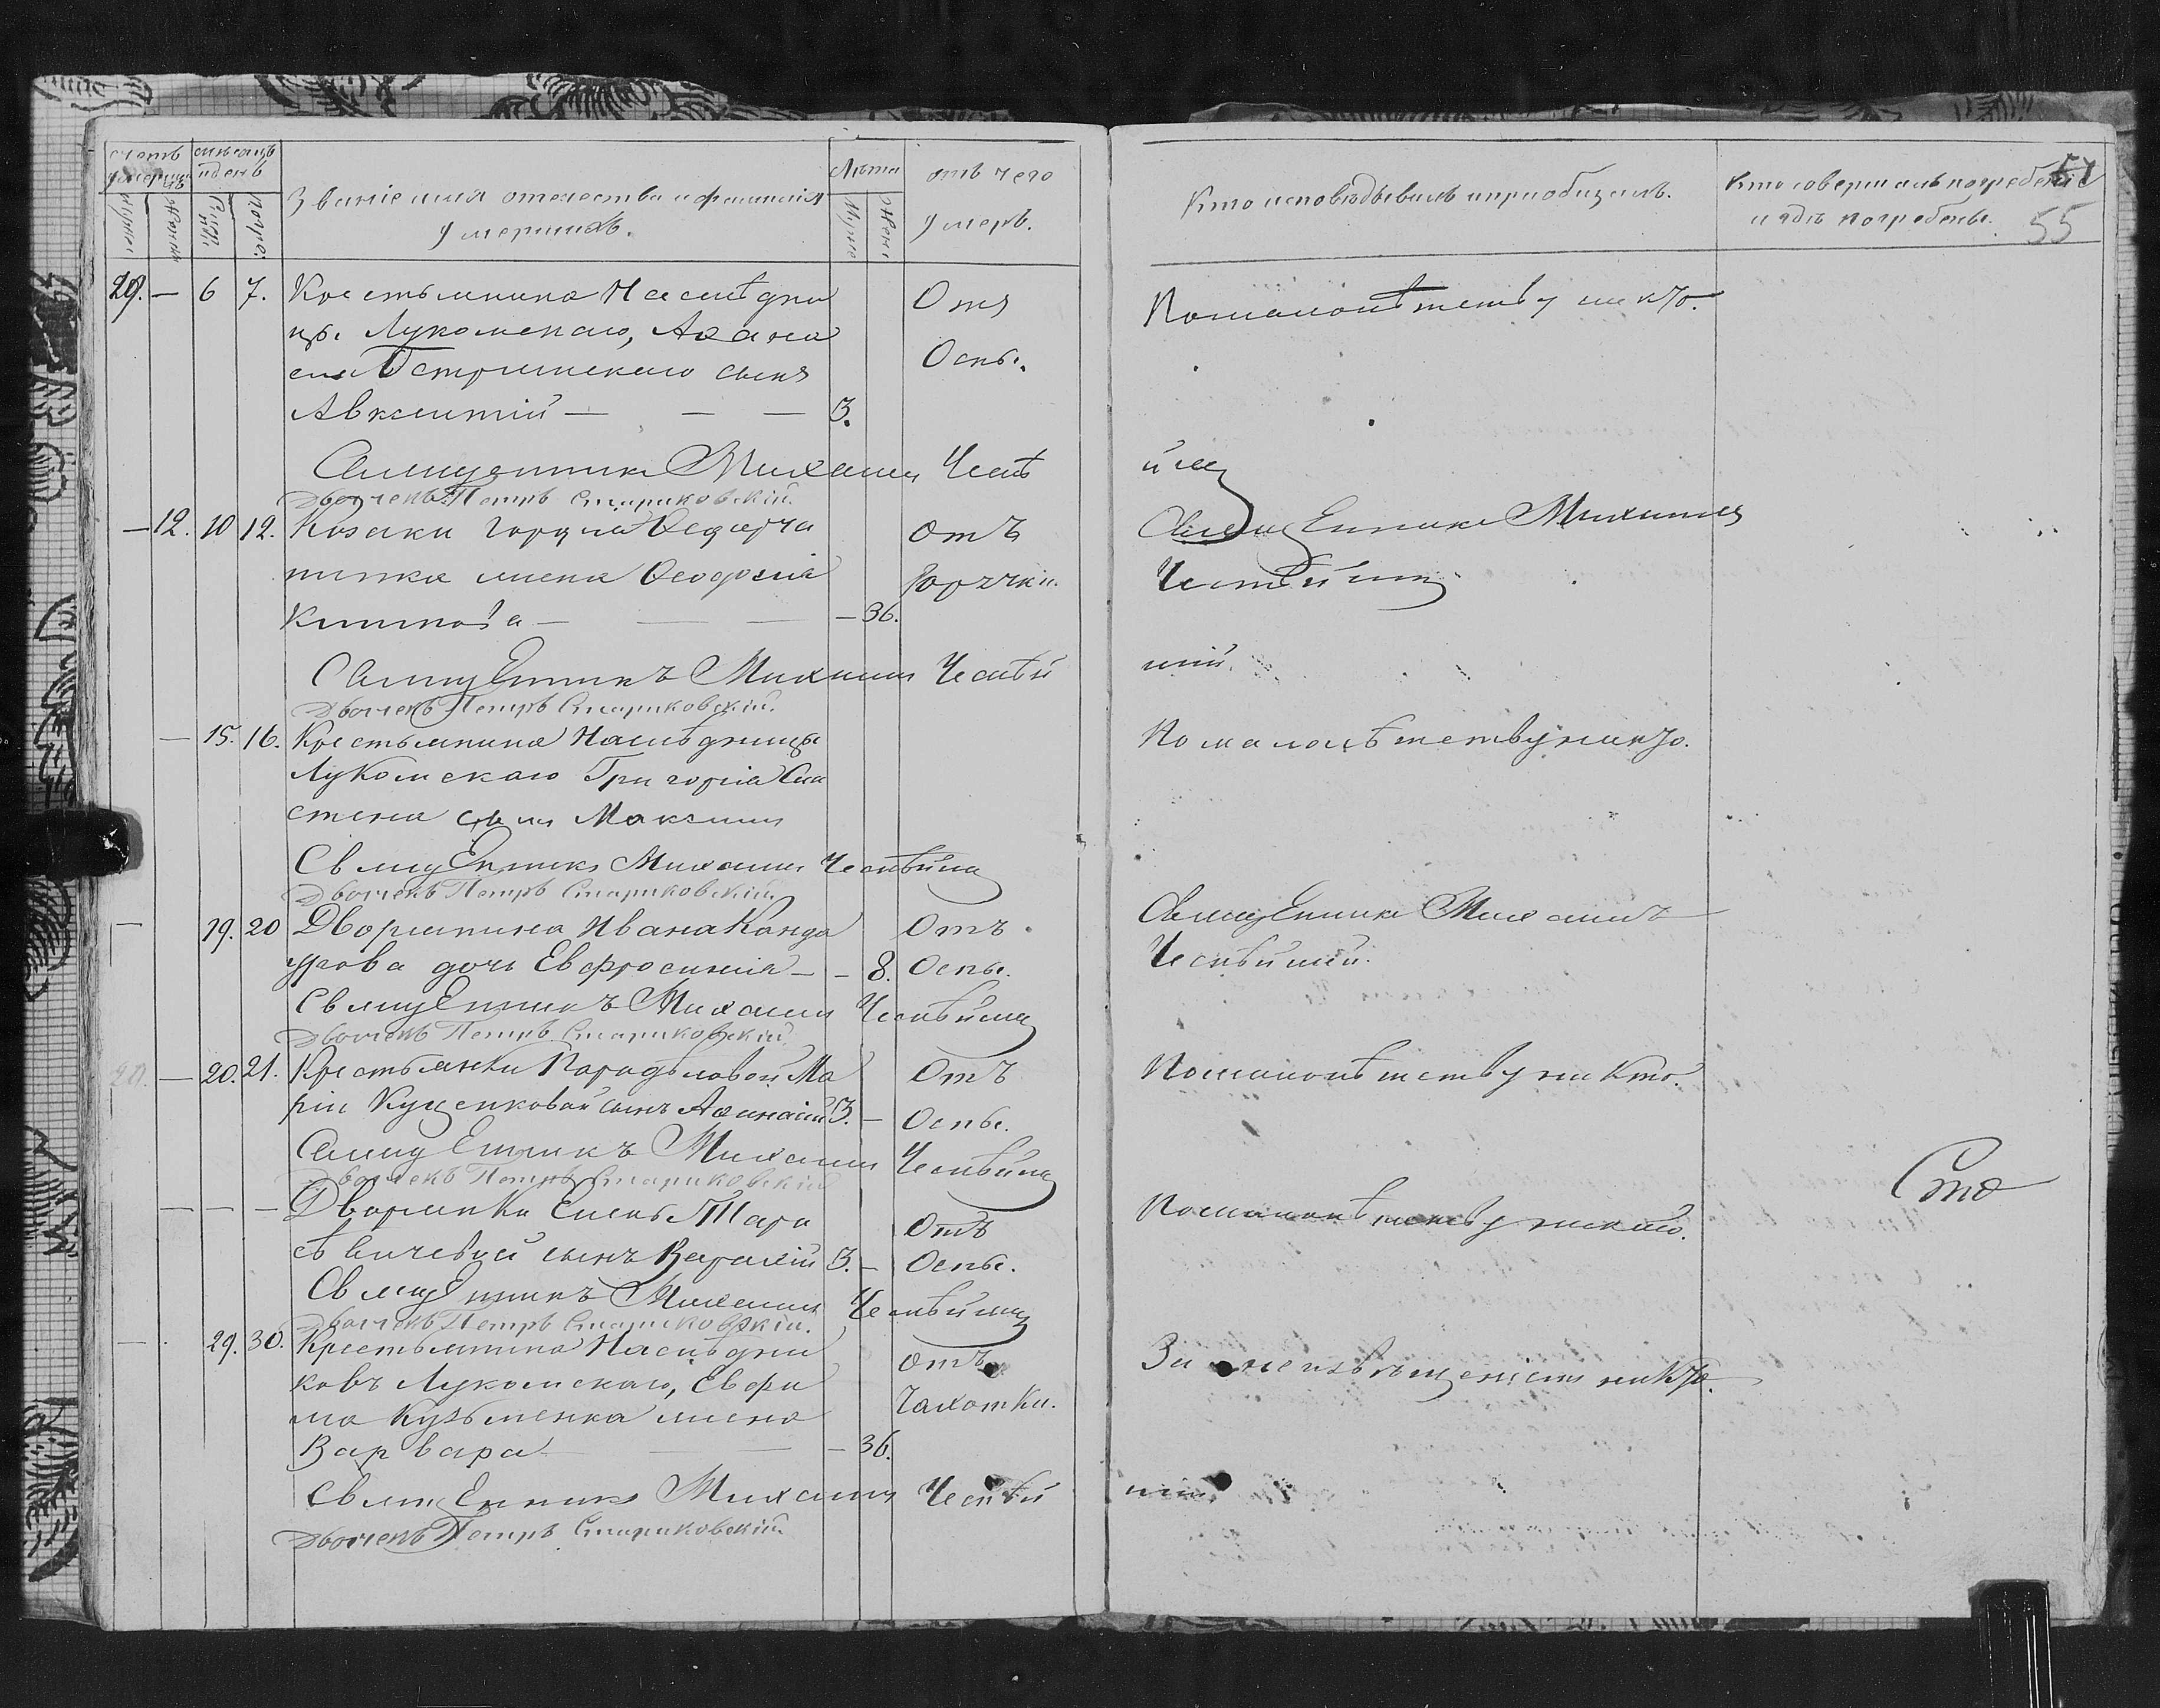 счетъ умерши
хъ
мѣсяцъ
и день
мужеск
женск
смер
ти
погре:
Званіе имя отечество и фамилія
умершихъ.
Лѣта
Муже
Жен:
отъ чего
умеръ.
Кто исповѣдывалъ и пріобщалъ.
Кто совершалъ погребеніе
и гдѣ погребены.
55
29. — 6 7. Крестьянина Наслѣдни
цы Лукомскаго, Аѳана
сія Острянскаго сынъ
Авксентій — — — 3.
Отъ
Оспы.
По малолѣтству никто.
Священникъ Михаилъ Чеснѣйшій
Дьячекъ Петръ Стариковскій.
— 12. 10 12. Козака Гордѣя Ѳедорча
жена Ѳеодосія
— — — 36.
отъ
горячки.
Священникъ Михаилъ
Чеснѣйшій
Священникъ Михаилъ Чеснѣйшій.
Дьячекъ Петръ Стариковскій.
— 15. 16. Крестьянина Наслѣдницы
Лукомскаго Григорія Сла
стена сынъ Максимъ
По малолѣтству никто.
Священникъ Михаилъ Чеснѣйшій
Дьячекъ Петръ Стариковскій
— 19. 20 Дворянина Ивана Канда
урова дочь Евфросинія — — 8.
Отъ
Оспы.
Священникъ Михаилъ
Чеснѣйшій.
Священникъ Михаилъ Чеснѣйшій
Дьячекъ Петръ Стариковскій
— 20. 21. Крестьянки Марі
и Куценковой сынъ Аѳанасій 3. —
Отъ
Оспы.
По малолѣтству никто.
Священникъ Михаилъ Чеснѣйшій
Дьячекъ Петръ Стариковскій
— — — Дворянки Елены Тара
сѣвичевой сынъ 3. —
Отъ
Оспы.
По малолѣтству никто.
Сто
Священникъ Михаилъ Чеснѣйшій
Дьячекъ Петръ Стариковскій.
— 29. 30. Крестьянина Наслѣдни
ковъ Лукомскаго, Евфи
ма Кузьменка жена
Варвара — — — 36.
отъ
чахотки.
За неизвѣщеніемъ никто.
Священникъ Михаилъ Чеснѣйшій
Дьячекъ Петръ Стариковскій